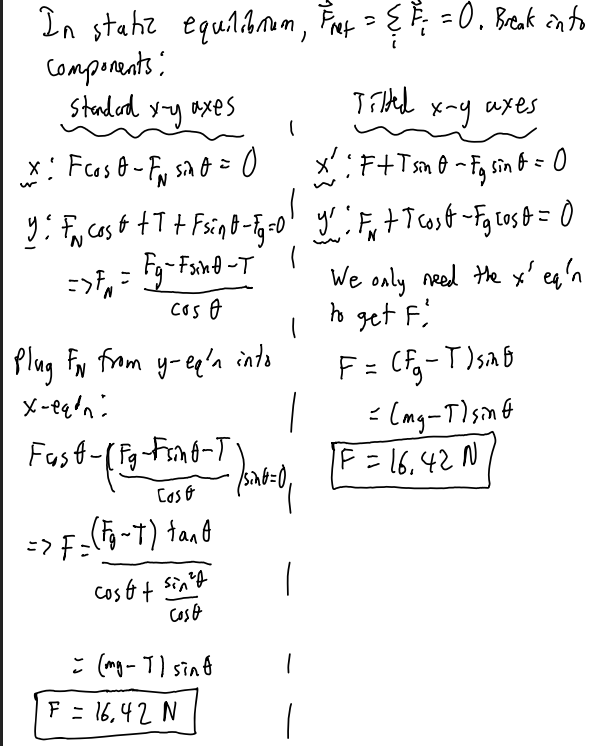 In static equilibrium, F⃗_net = Σ_i F⃗_i = 0. Break into
components:
Standard x-y axes
x: Fcos θ - F_N sin θ = 0
y: F_N cos θ + T + Fsin θ - F_g = 0
=> F_N = (F_g - Fsinθ - T) / cos θ
Plug F_N from y-eq'n into
x-eq'n:
Fcos θ - ((F_g - Fsinθ - T) / cosθ) sinθ = 0
=> F = (F_g - T) tanθ / (cosθ + sin²θ / cosθ)
= (mg - T) sinθ
F = 16.42 N
Tilted x-y axes
x': F + T sin θ - F_g sin θ = 0
y': F_N + T cosθ - F_g cosθ = 0
We only need the x' eq'n
to get F:
F = (F_g - T) sinθ
= (mg - T) sinθ
F = 16.42 N